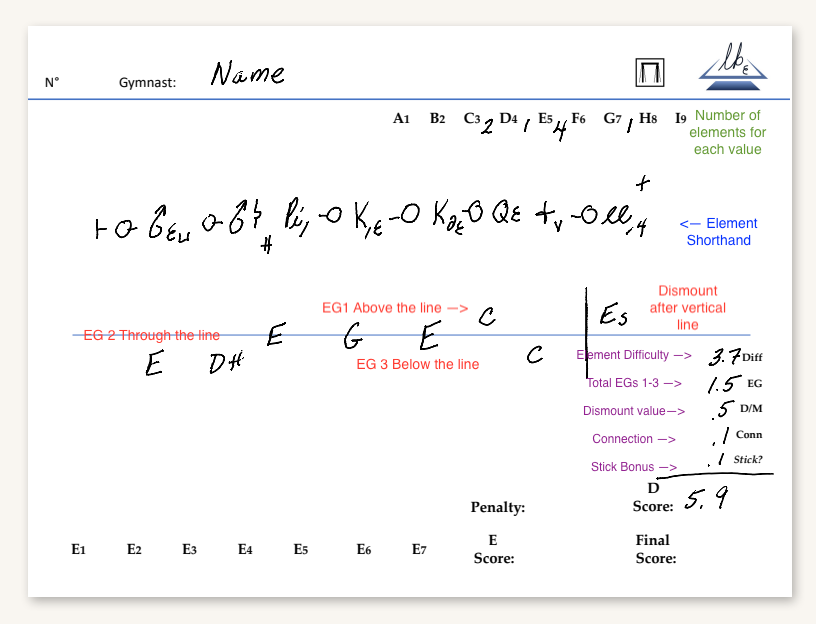 N° Gymnast: Name
A1 B2 C3 2 D4 1 E5 4 F6 G7 1 H8 I9
Number of
elements for
each value
<— Element
Shorthand
Dismount
after vertical
line
EG1 Above the line —>
C
Es
EG 2 Through the line
E G E
EG 3 Below the line
E DH C
Element Difficulty —> 3.7 Diff
Total EGs 1-3 —> 1.5 EG
Dismount value—> .5 D/M
Connection —> .1 Conn
Stick Bonus —> .1 Stick?
D
Score: 5.9
Penalty:
E1 E2 E3 E4 E5 E6 E7
E
Score:
Final
Score: